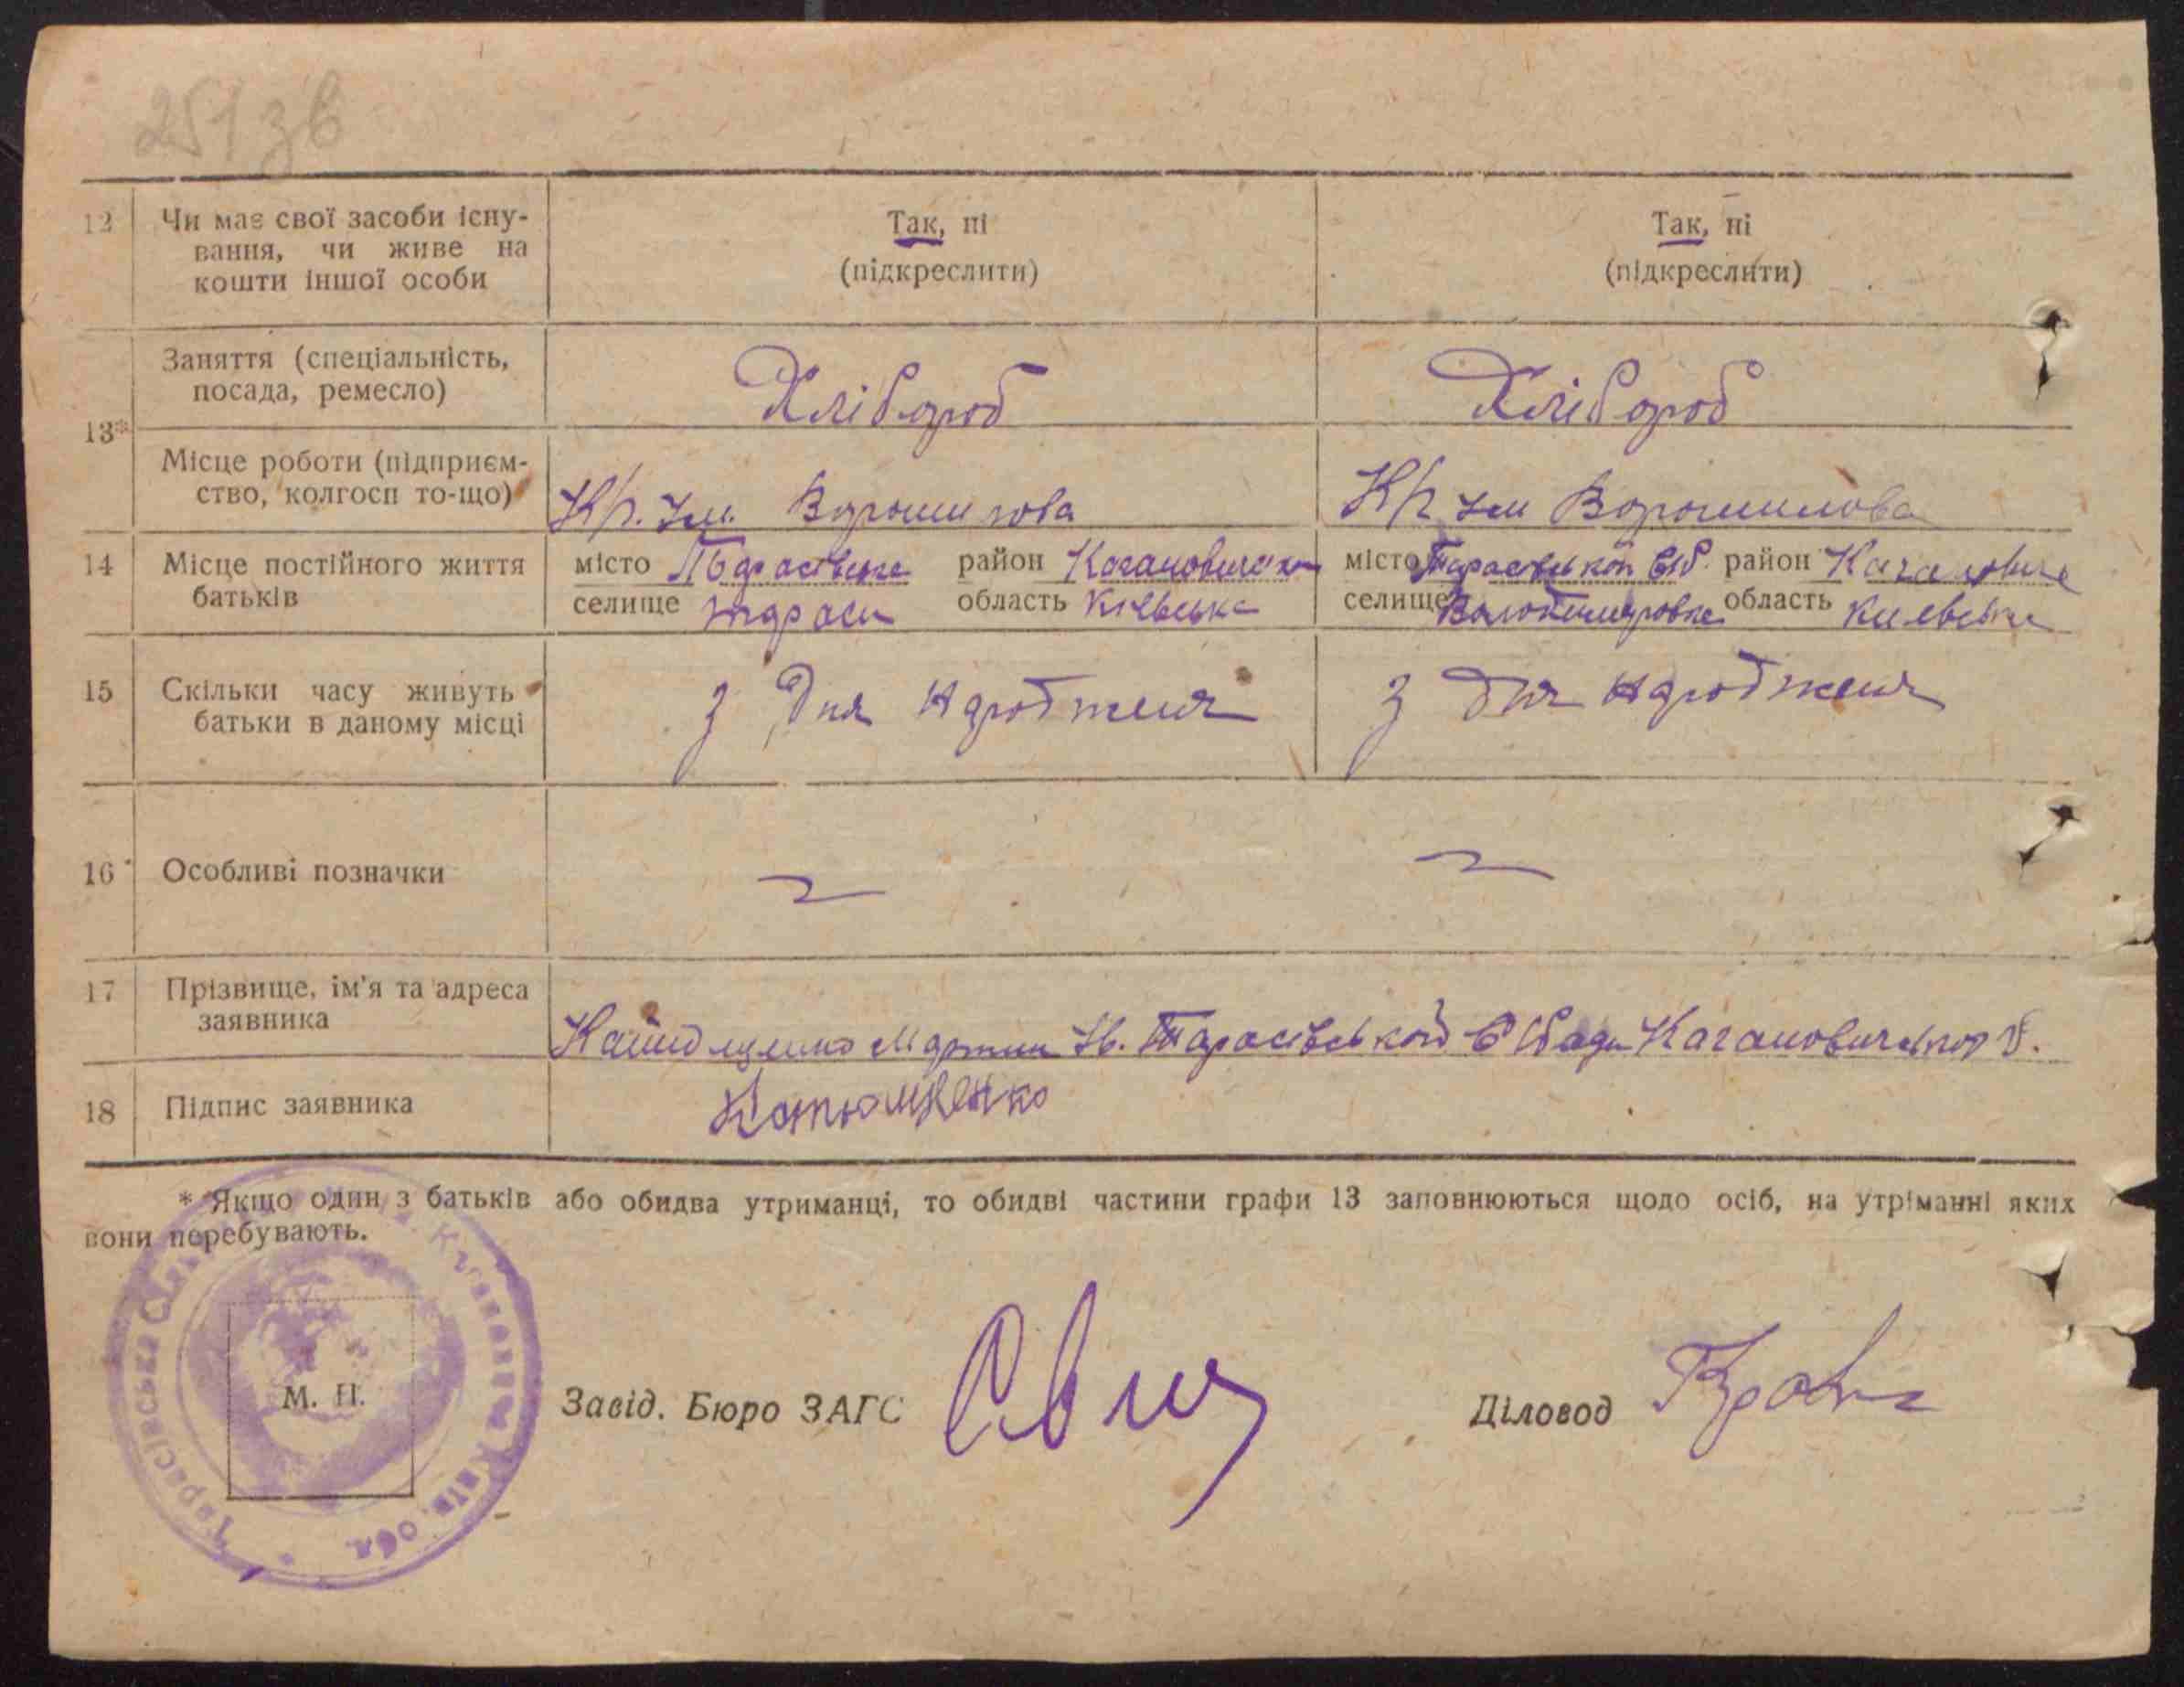 251 зв
12 Чи має свої засоби існу-
вання, чи живе на
кошти іншої особи
Так, ні
(підкреслити)
Так, ні
(підкреслити)
13*
Заняття (спеціальність,
посада, ремесло)
Хлібороб
Хлібороб
Місце роботи (підприєм-
ство, колгосп то-що)
К/р. Ім. Ворошилова
К/р Ім Ворошилова
14 Місце постійного життя
батьків
місто район
селище Тараси область Київська
місто район
селище область Киевська
15 Скільки часу живуть
батьки в даному місці
З Дня народження
З дня народження
16 Особливі позначки
17 Прізвище, ім'я та адреса
заявника
Мартин Ів. Тарасівської С/Ради
18 Підпис заявника
* Якщо один з батьків або обидва утриманці, то обидві частини графи 13 заповнюються щодо осіб, на утріманні яких
вони перебувають.
Тарасівська
обл.
М. П.
Завід. Бюро ЗАГС
Діловод